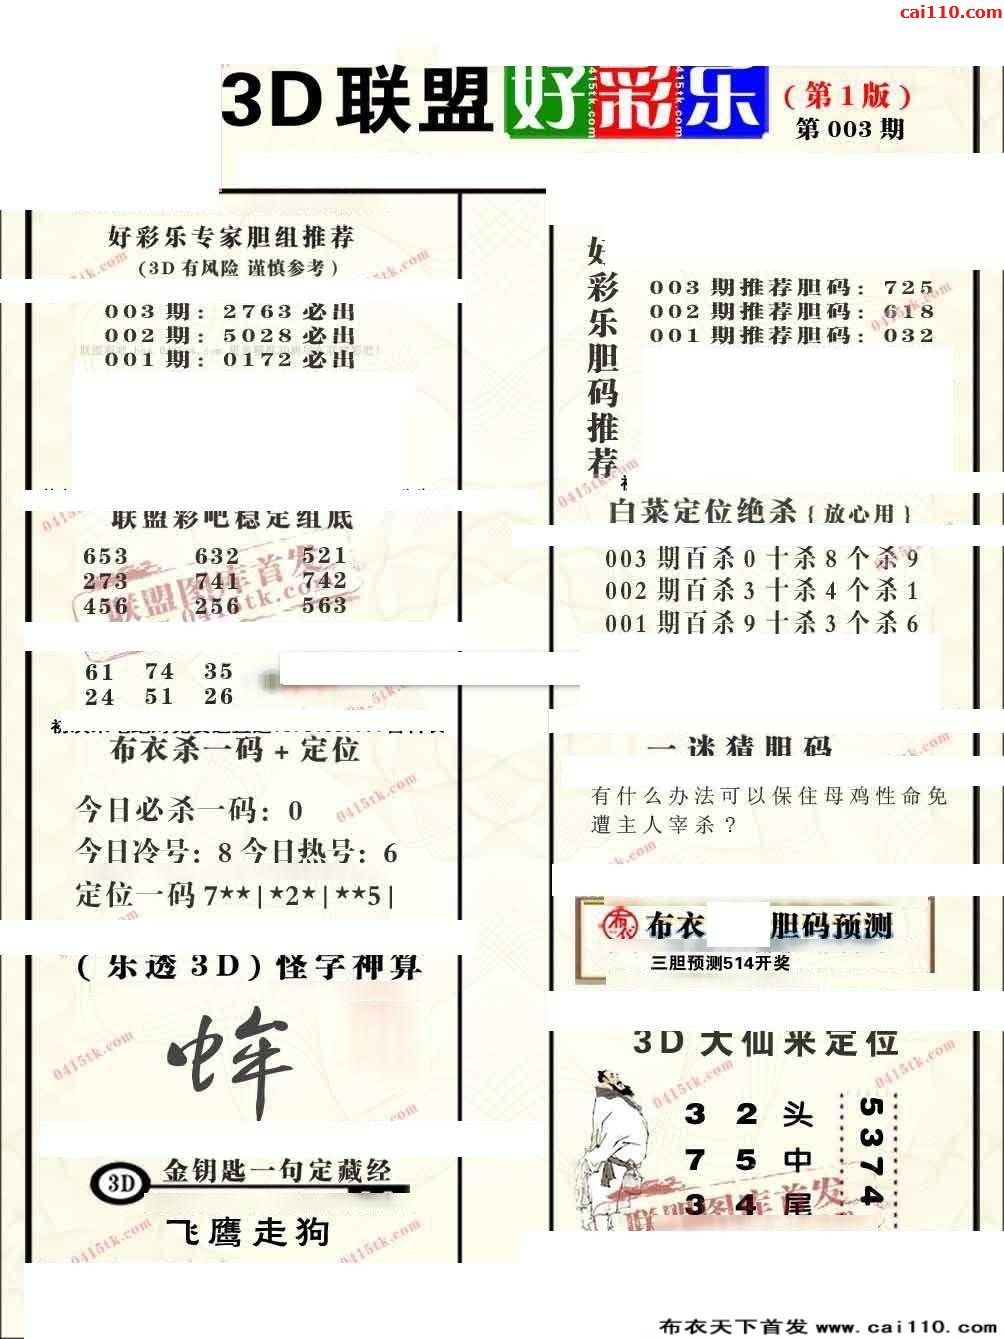 cai110.com
3D联盟好彩乐
(第1版)
第003期
好彩乐专家胆组推荐
(3D有风险 谨慎参考)
003期: 2763必出
002期: 5028必出
001期: 0172必出
好彩乐胆码推荐
003期推荐胆码: 725
002期推荐胆码: 618
001期推荐胆码: 032
联盟彩吧稳定组底
653 632 521
273 741 742
456 256 563
61 74 35
24 51 26
白菜定位绝杀{放心用}
003期百杀0十杀8个杀9
002期百杀3十杀4个杀1
001期百杀9十杀3个杀6
布衣杀一码+定位
今日必杀一码: 0
今日冷号: 8今日热号: 6
定位一码7**|*2*|**5|
一迷猜胆码
有什么办法可以保住母鸡性命免
遭主人宰杀?
布衣 胆码预测
三胆预测514开奖
(乐透3D)怪字神算
3D大仙来定位
3 2 头
7 5 中
3 4 尾
5374
3D 金钥匙一句定藏经
飞鹰走狗
联盟图库首发
0415tk.com
布衣天下首发 www.cai110.com